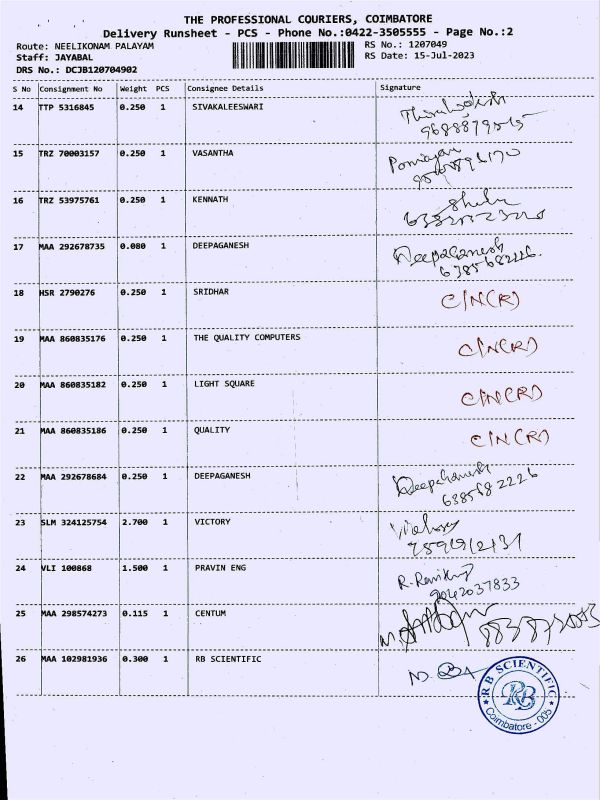 THE PROFESSIONAL COURIERS, COIMBATORE
Delivery Runsheet - PCS - Phone No.:0422-3505555 - Page No.:2
Route: NEELIKONAM PALAYAM RS No.: 1207049
Staff: JAYABAL RS Date: 15-Jul-2023
DRS No.: DCJB120704902
S No Consignment No Weight PCS Consignee Details Signature
14 TTP 5316845 0.250 1 SIVAKALEESWARI
15 TRZ 70003157 0.250 1 VASANTHA
16 TRZ 53975761 0.250 1 KENNATH
17 MAA 292678735 0.080 1 DEEPAGANESH Deepaganesh
6385682226.
18 HSR 2790276 0.250 1 SRIDHAR C/N(R)
19 MAA 860835176 0.250 1 THE QUALITY COMPUTERS C/N(R)
20 MAA 860835182 0.250 1 LIGHT SQUARE C/N(R)
21 MAA 860835186 0.250 1 QUALITY C/N(R)
22 MAA 292678684 0.250 1 DEEPAGANESH Deepaganesh
6385682226
23 SLM 324125754 2.700 1 VICTORY
24 VLI 100868 1.500 1 PRAVIN ENG
9042037833
25 MAA 298574273 0.115 1 CENTUM
26 MAA 102981936 0.300 1 RB SCIENTIFIC
RB SCIENTIFIC
RB
Coimbatore - 005